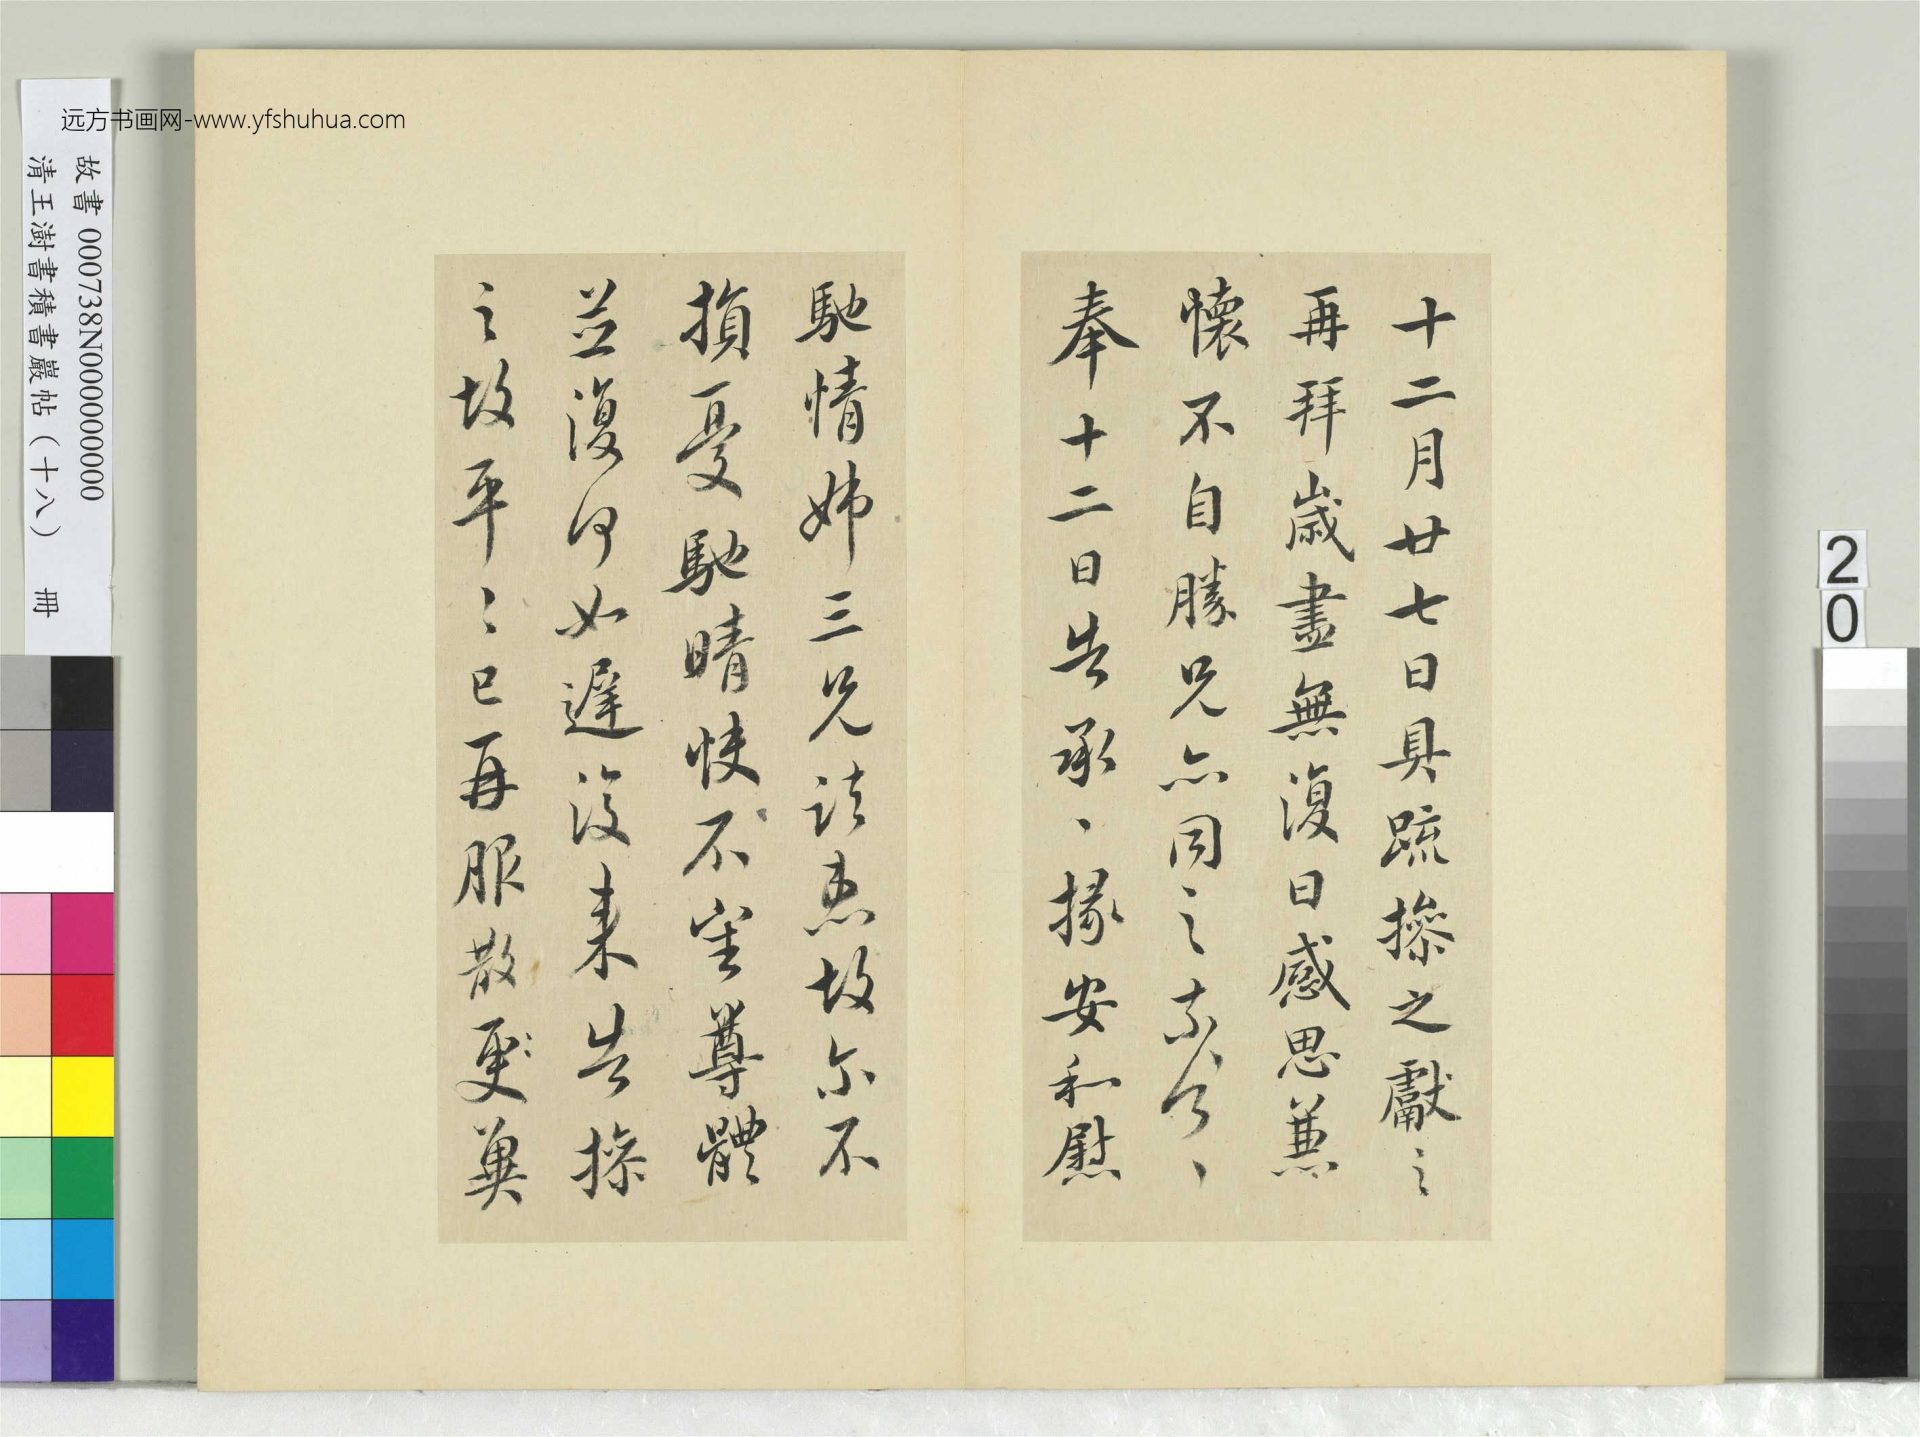 十二月廿七日具疏操之獻之
再拜歲盡無復日感思兼
懷不自勝兄亦同之
奉十二日告承、掾安和慰
馳情姊三兄諸患故尔不
損憂馳晴快不審尊體
並復何如遲後來告操
之故平〻已再服散更冀
远方书画网-www.yfshuhua.com
故書 000738N000000000
清王澍書積書巖帖(十八) 冊
20